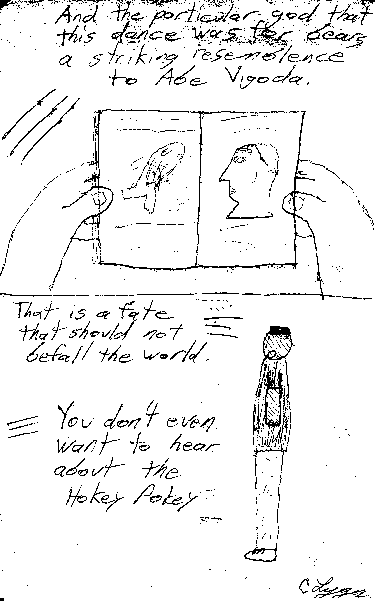 And the particular god that
this dance was for bears
a striking resemblence
to Abe Vigoda.
That is a fate
that should not
befall the world.
You don't even
want to hear
about the
Hokey Pokey
C Lynn